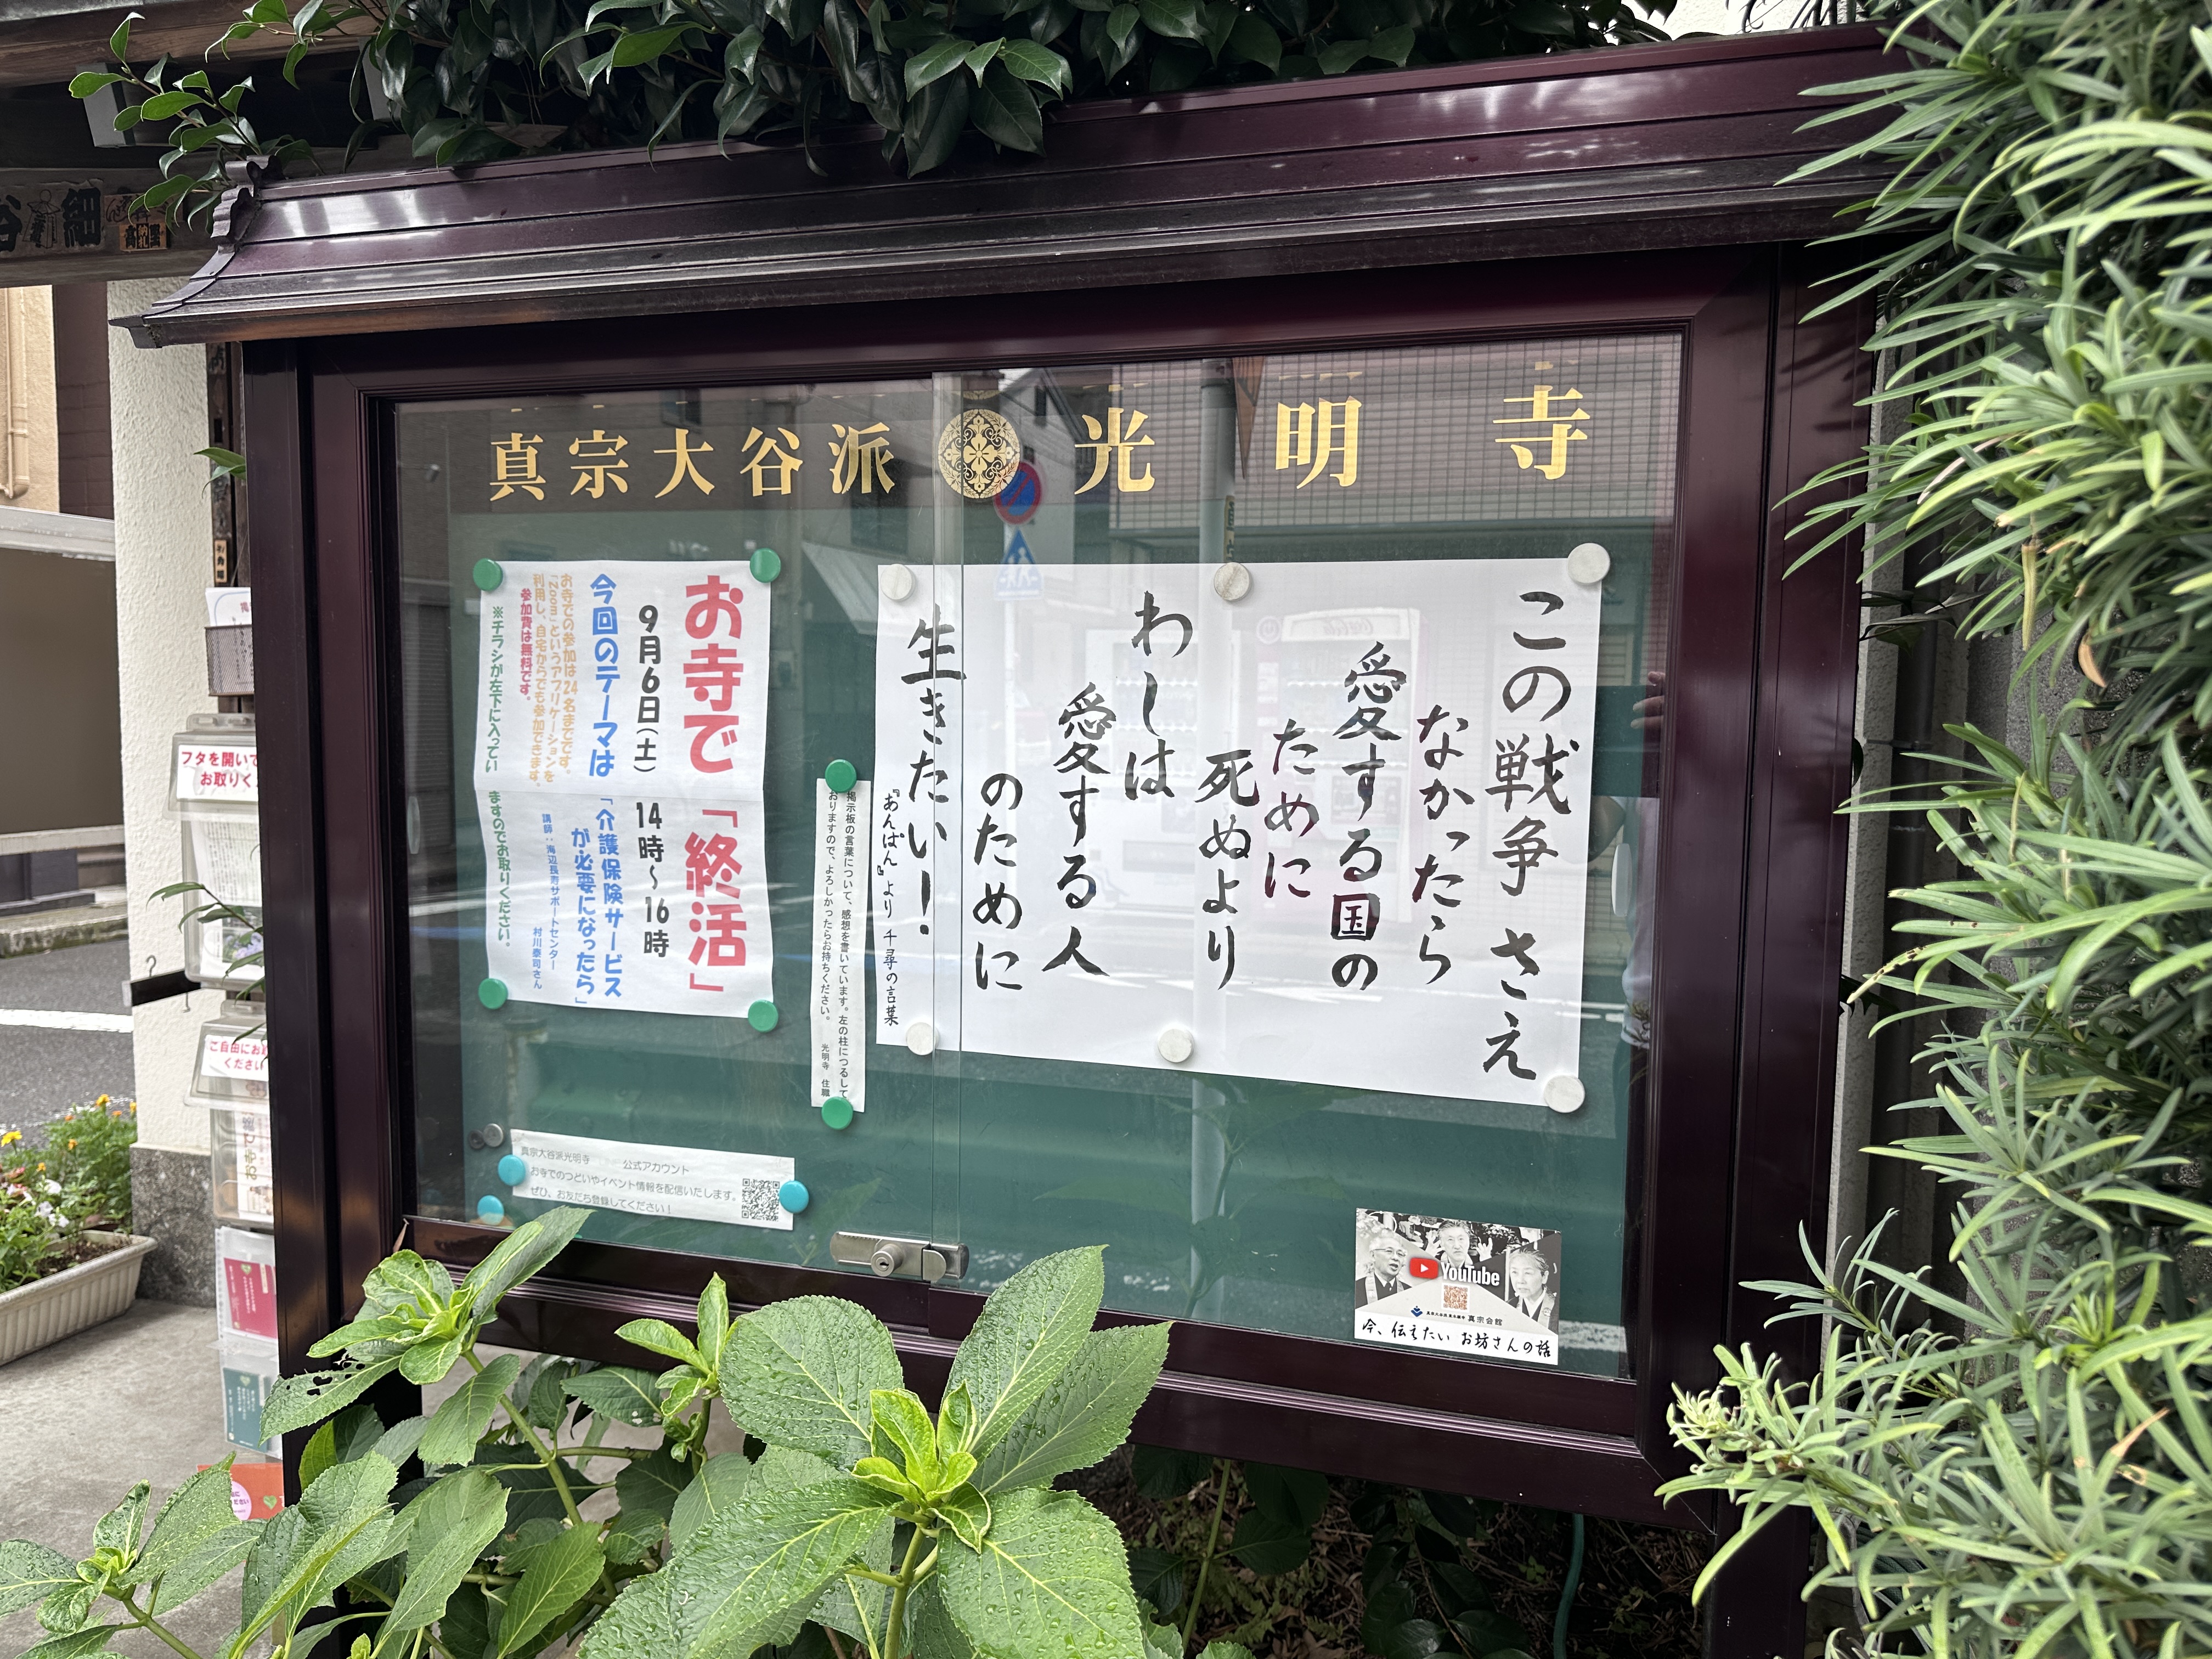 真宗大谷派 光明寺
この戦争さえ
なかったら
愛する国の
ために
死ぬより
わしは
愛する人
のために
生きたい!
『あんぱん』より 千尋の言葉
掲示板の言葉について、感想を書いています。左の柱につるして
おりますので、よろしかったらお持ちください。 光明寺 住職
お寺で「終活」
9月6日(土) 14時~16時
今回のテーマは
「介護保険サービス
が必要になったら」
講師:海辺長寿サポートセンター 村川泰司さん
お寺での参加は24名までです。
「Zoom」というアプリケーションを
利用し、自宅からでも参加できます。
参加費は無料です。
※チラシが左下に入ってい
ますのでお取りください。
真宗大谷派光明寺 公式アカウント
お寺でのつどいやイベント情報を配信いたします。
ぜひ、お友だち登録してください!
YouTube
真宗会館
今、伝えたい お坊さんの話
フタを開いて
お取りく
ご自由にお
ください
谷
細